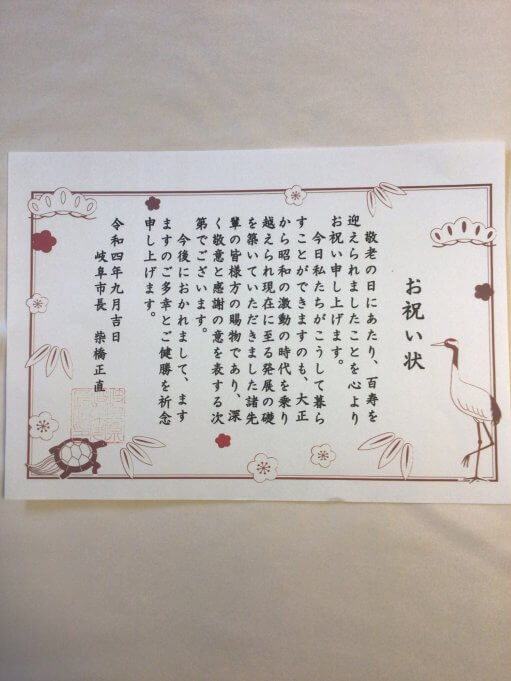 お祝い状
敬老の日にあたり、百寿を
迎えられましたことを心より
お祝い申し上げます。
今日私たちがこうして暮ら
すことができますのも、大正
から昭和の激動の時代を乗り
越えられ現在に至る発展の礎
を築いていただきました諸先
輩の皆様方の賜物であり、深
く敬意と感謝の意を表する次
第でございます。
今後におかれまして、ます
ますのご多幸とご健勝を祈念
申し上げます。
令和四年九月吉日
岐阜市長 柴橋正直